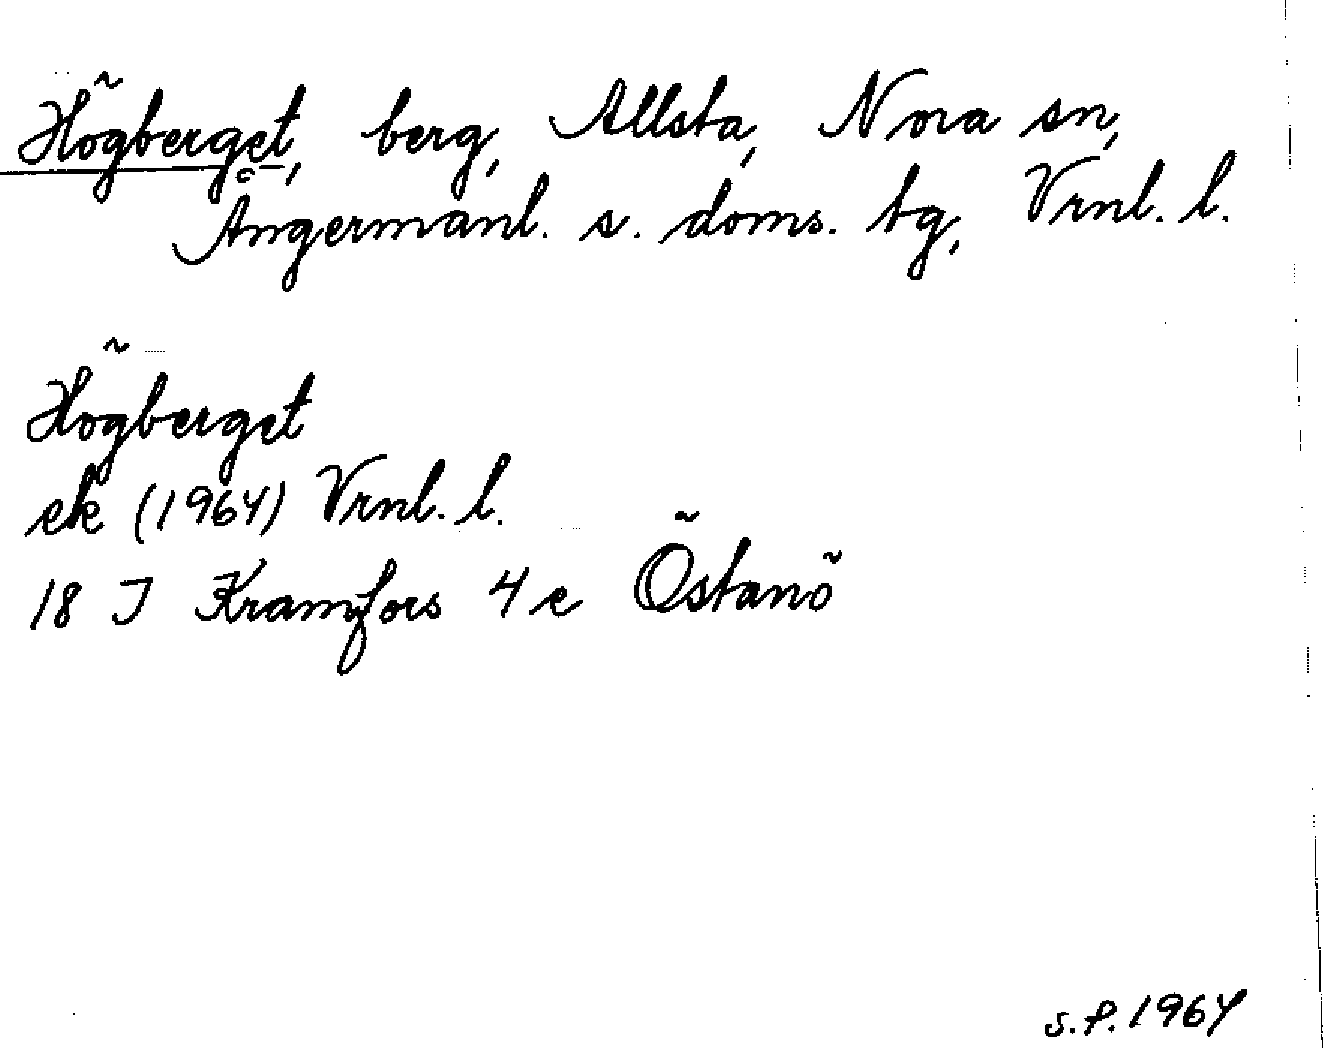 Högberget, berg, Allsta, Nora sn,
Ångermanl. s. doms. tg, Vrnl. l.
Högberget
ek (1964) Vrnl. l.
18 I Kramfors 4 e Östanö
s.f. 1964